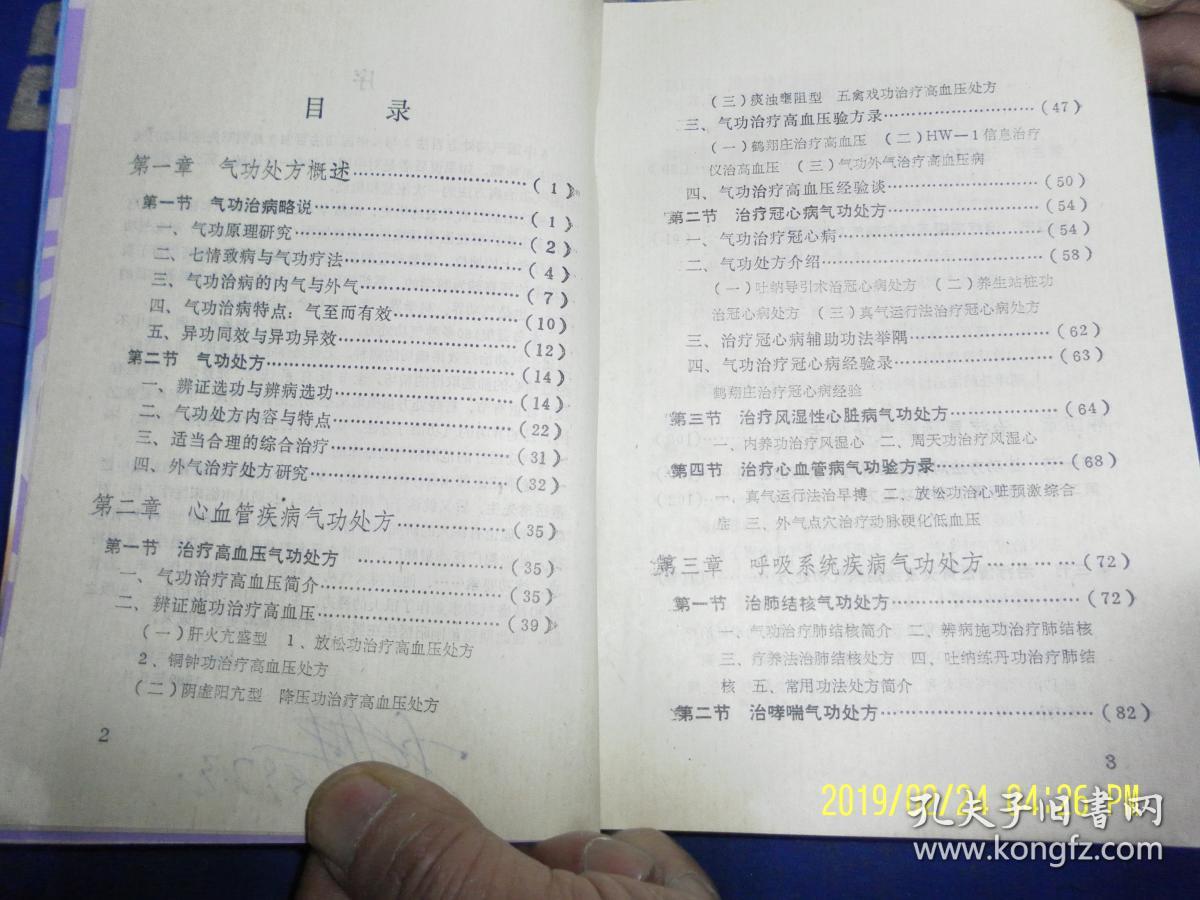 目　录
第一章　气功处方概述………………………(1)
第一节　气功治病略说…………………………(1)
一、气功原理研究………………………………(2)
二、七情致病与气功疗法………………………(4)
三、气功治病的内气与外气……………………(7)
四、气功治病特点：气至而有效………………(10)
五、异功同效与异功异效………………………(12)
第二节　气功处方………………………………(14)
一、辨证选功与辨病选功………………………(14)
二、气功处方内容与特点………………………(22)
三、适当合理的综合治疗………………………(31)
四、外气治疗处方研究…………………………(32)
第二章　心血管疾病气功处方…………………(35)
第一节　治疗高血压气功处方…………………(35)
一、气功治疗高血压简介………………………(35)
二、辨证施功治疗高血压………………………(39)
(一)肝火亢盛型　1、放松功治疗高血压处方
2、铜钟功治疗高血压处方
(二)阴虚阳亢型　降压功治疗高血压处方
2
(三)痰浊壅阻型　五禽戏功治疗高血压处方
三、气功治疗高血压验方录……………………(47)
(一)鹤翔庄治疗高血压　(二)HW—1信息治疗
仪治高血压　(三)气功外气治疗高血压病
四、气功治疗高血压经验谈……………………(50)
第二节　治疗冠心病气功处方…………………(54)
一、气功治疗冠心病……………………………(54)
二、气功处方介绍………………………………(58)
(一)吐纳导引术治冠心病处方　(二)养生站桩功
治冠心病处方　(三)真气运行法治疗冠心病处方
三、治疗冠心病辅助功法举隅…………………(62)
四、气功治疗冠心病经验录……………………(63)
鹤翔庄治疗冠心病经验
第三节　治疗风湿性心脏病气功处方…………(64)
一、内养功治疗风湿心　二、周天功治疗风湿心
第四节　治疗心血管病气功验方录……………(68)
一、真气运行法治早搏　二、放松功治心脏预激综合
症　三、外气点穴治疗动脉硬化低血压
第三章　呼吸系统疾病气功处方…………(72)
第一节　治肺结核气功处方……………………(72)
一、气功治疗肺结核简介　二、辨病施功治疗肺结核
三、疗养法治肺结核处方　四、吐纳练丹功治疗肺结
核　五、常用功法处方简介
第二节　治哮喘气功处方………………………(82)
3
2019/02/24 04:26 PM
孔夫子旧书网
www.kongfz.com